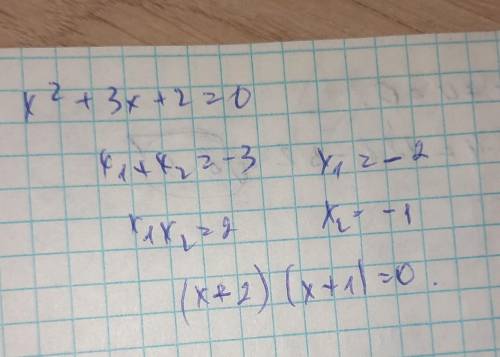 x² + 3x + 2 = 0
x₁ + x₂ = -3    x₁ = -2
x₁x₂ = 2    x₂ = -1
(x+2)(x+1)=0.